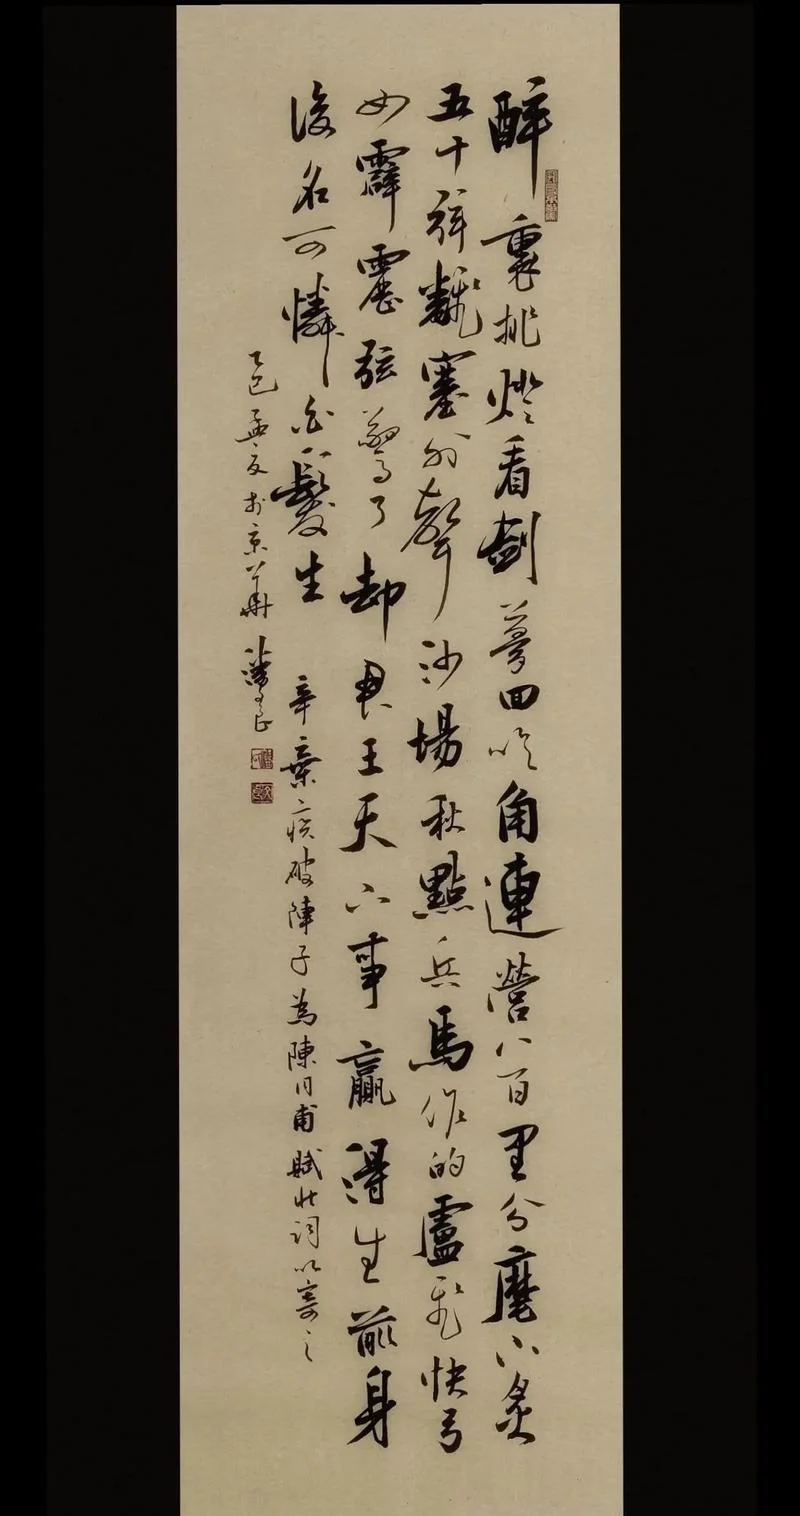 醉裏挑燈看劍夢回吹角連營八百里分麾下炙
五十絃翻塞外聲沙場秋點兵馬作的盧飛快弓
如霹靂弦驚了却君王天下事贏得生前身
後名可憐白髮生 辛棄疾破陣子為陳同甫賦壯詞以寄之
乙巳孟夏於京華